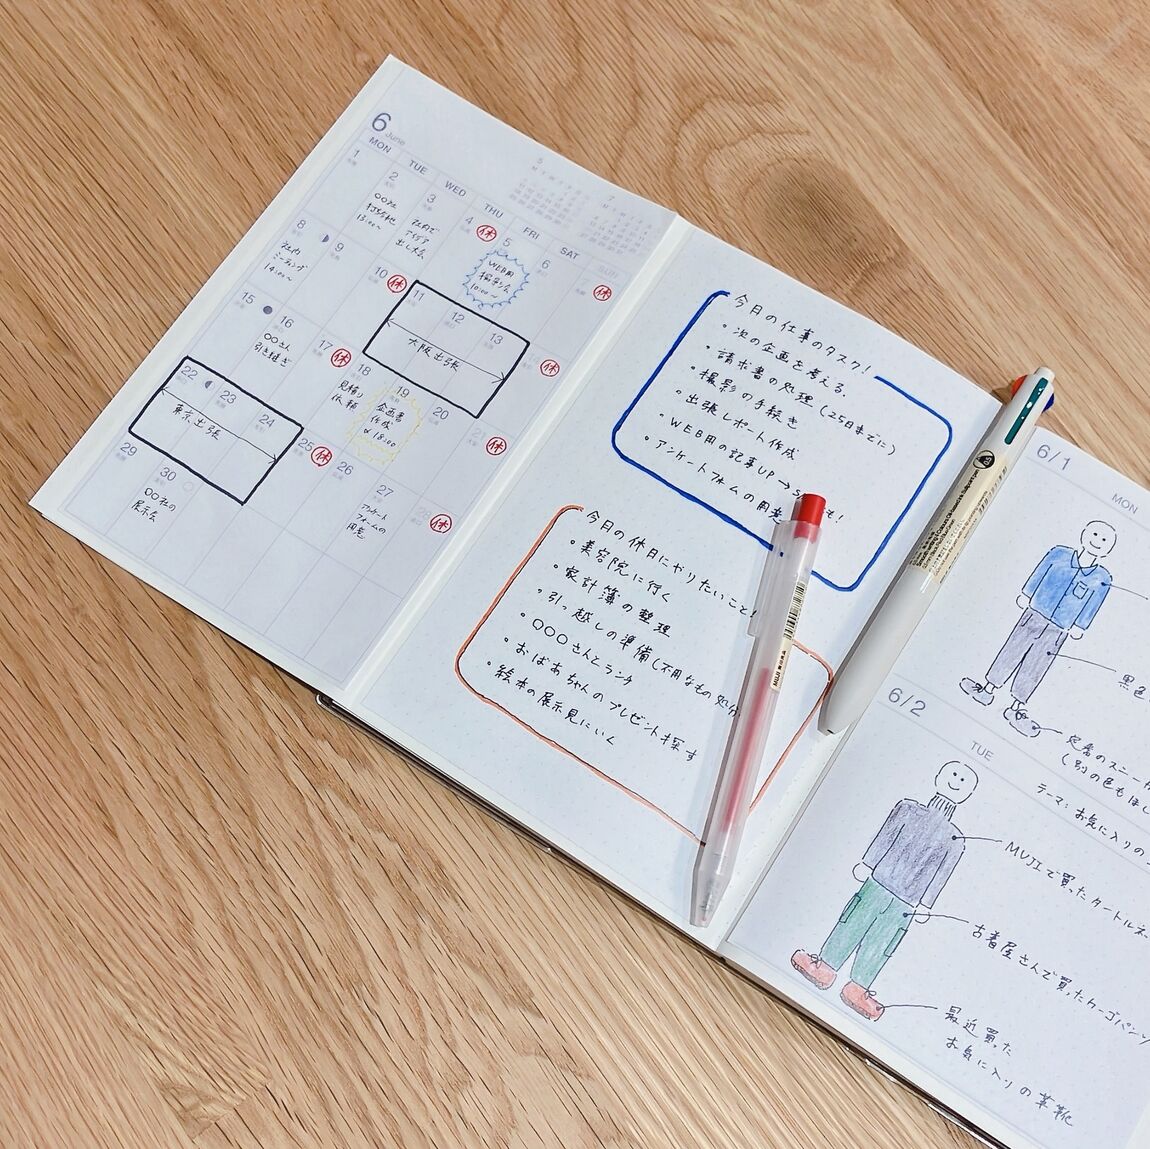 6 June
MON TUE WED THU FRI SAT SUN
1
2
〇〇社
打ち合わせ
13:00〜
3
社内で
アイデア
出し大会
4 休
5
WEB用
撮影会
10:00〜
6
休
8
社内
ミーティング
14:00〜
9
10 休
11
12
13
大阪出張
休
15
16
〇〇さん
引き継ぎ
17 休
18
見積り
依頼
19
企画書
作成
18:00
20
休
22
23
24
東京出張
25 休
26
27
アンケート
フォームの
用意
28 休
29
30
〇〇社の
展示会
今月の仕事のタスク!
・次の企画を考える.
・請求書の処理(25日までに)
・撮影の手続き
・出張レポート作成
・WEB用の記事UP→
・アンケートフォームの用意
今月の休日にやりたいこと!
・美容院に行く
・家計簿の整理
・引っ越しの準備(不用なもの処分
・〇〇〇さんとランチ
・おばあちゃんのプレゼント探す
・絵本の展示見にいく
MUJI 無印良品
0.5
6/1
MON
黒色
定番のスニー
(別の色もほし
6/2
TUE
テーマ:お気に入りの
MUJIで買ったタートルネ
古着屋さんで買ったカーゴパンツ
最近買った
お気に入りの革靴